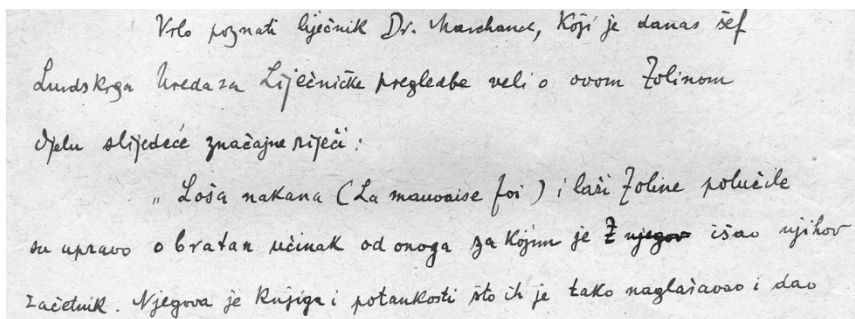 Vrlo poznati liječnik Dr. Marchand, koji je danas šef
Lurdskoga Ureda za Liječničke preglede veli o ovom Zolinom
djelu slijedeće značajne riječi:
„ Loša nakana (La mauvaise foi) i laži Zoline polučile
su upravo obratan učinak od onoga za kojim je Z njegov išao njihov
začetnik. Njegova je knjiga i potankosti što ih je tako naglašavao i dao